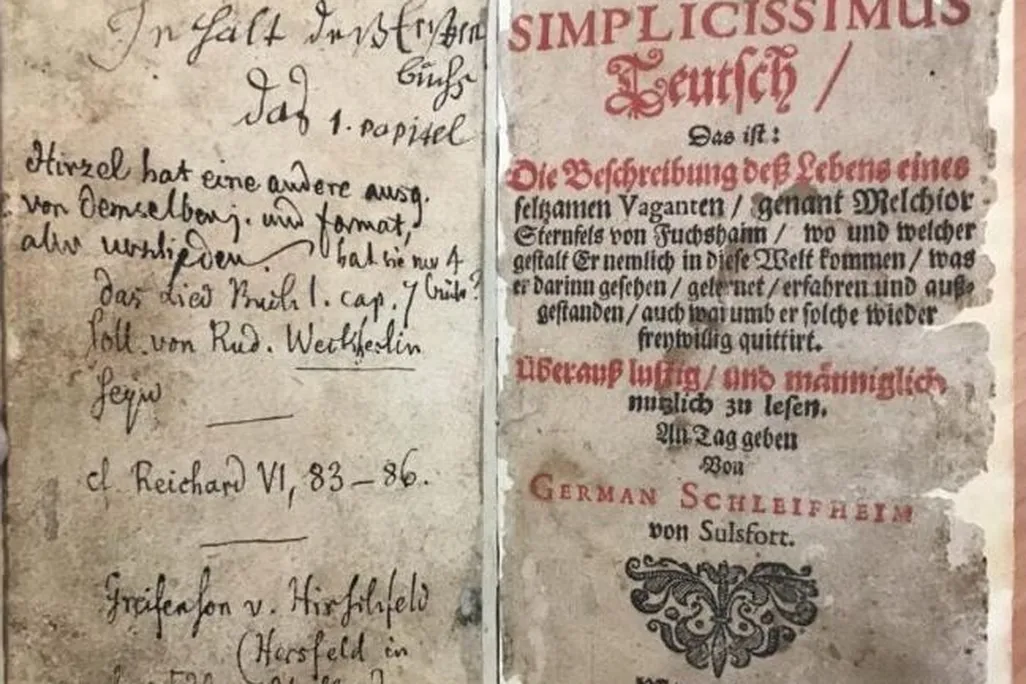 Inhalt deß Ersten
buchs
das 1. capitel
Hirzel hat eine andere ausg.
von demselben j. und format,
aber verschieden. hat sie nur 4
das Lied Buch 1. cap. 7
soll von Rud. Weckherlin
seyn
cf. Reichard VI, 83–86.
Greifenson v. Hirschfeld
(Hersfeld in
SIMPLICISSIMUS
Teutsch /
Das ist:
Die Beschreibung deß Lebens eines
seltzamen Vaganten / genant Melchior
Sternfels von Fuchshaim / wo und welcher
gestalt Er nemlich in diese Welt kommen / was
er darinn gesehen / gelernet / erfahren und auß-
gestanden / auch warumb er solche wieder
freywillig quittirt.
Überauß lustig / und männiglich
nutzlich zu lesen.
An Tag geben
Von
GERMAN SCHLEIFHEIM
von Sulsfort.